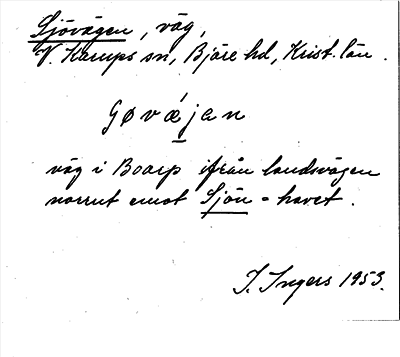 Sjövägen, väg,
V. Karups sn, Bjäre hd, Krist. län.
ʃøvǽjan
väg i Boarp ifrån landsvägen
norrut emot Sjön = havet.
I. Ingers 1953.